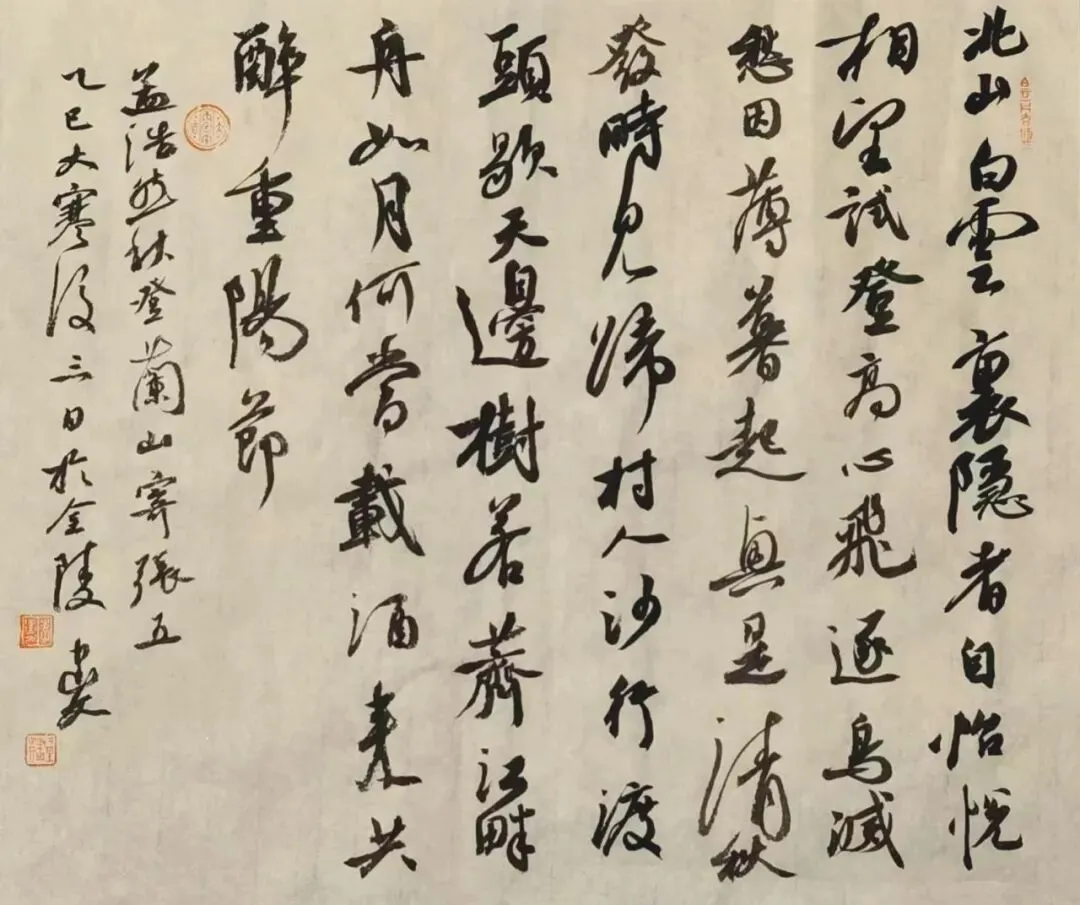 北山白雲裏隱者自怡悅
相望試登高心飛逐鳥滅
愁因薄暮起興是清秋
發時見歸村人沙行渡
頭歇天邊樹若薺江畔
舟如月何當載酒來共
醉重陽節
孟浩然秋登蘭山寄張五
乙巳大寒後三日於金陵